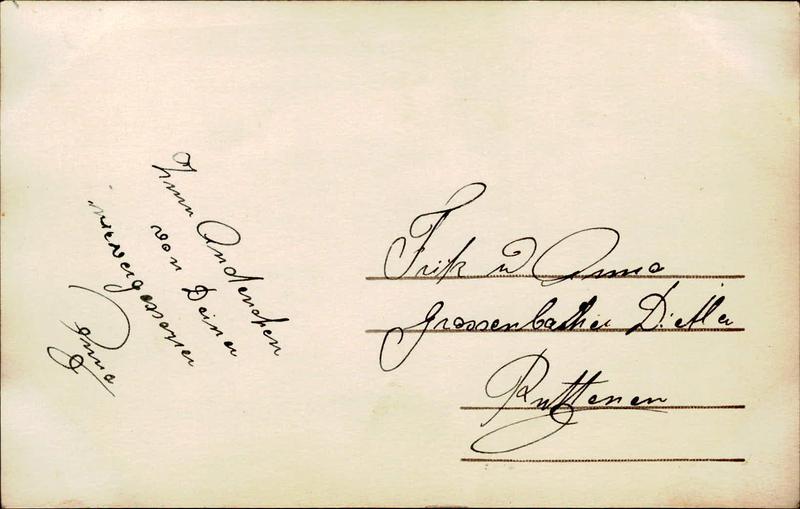 Zum Andenken
von Deiner
unvergessener
Anna
Frik u Anna
Grossenbacher Dietler
Rüttenen